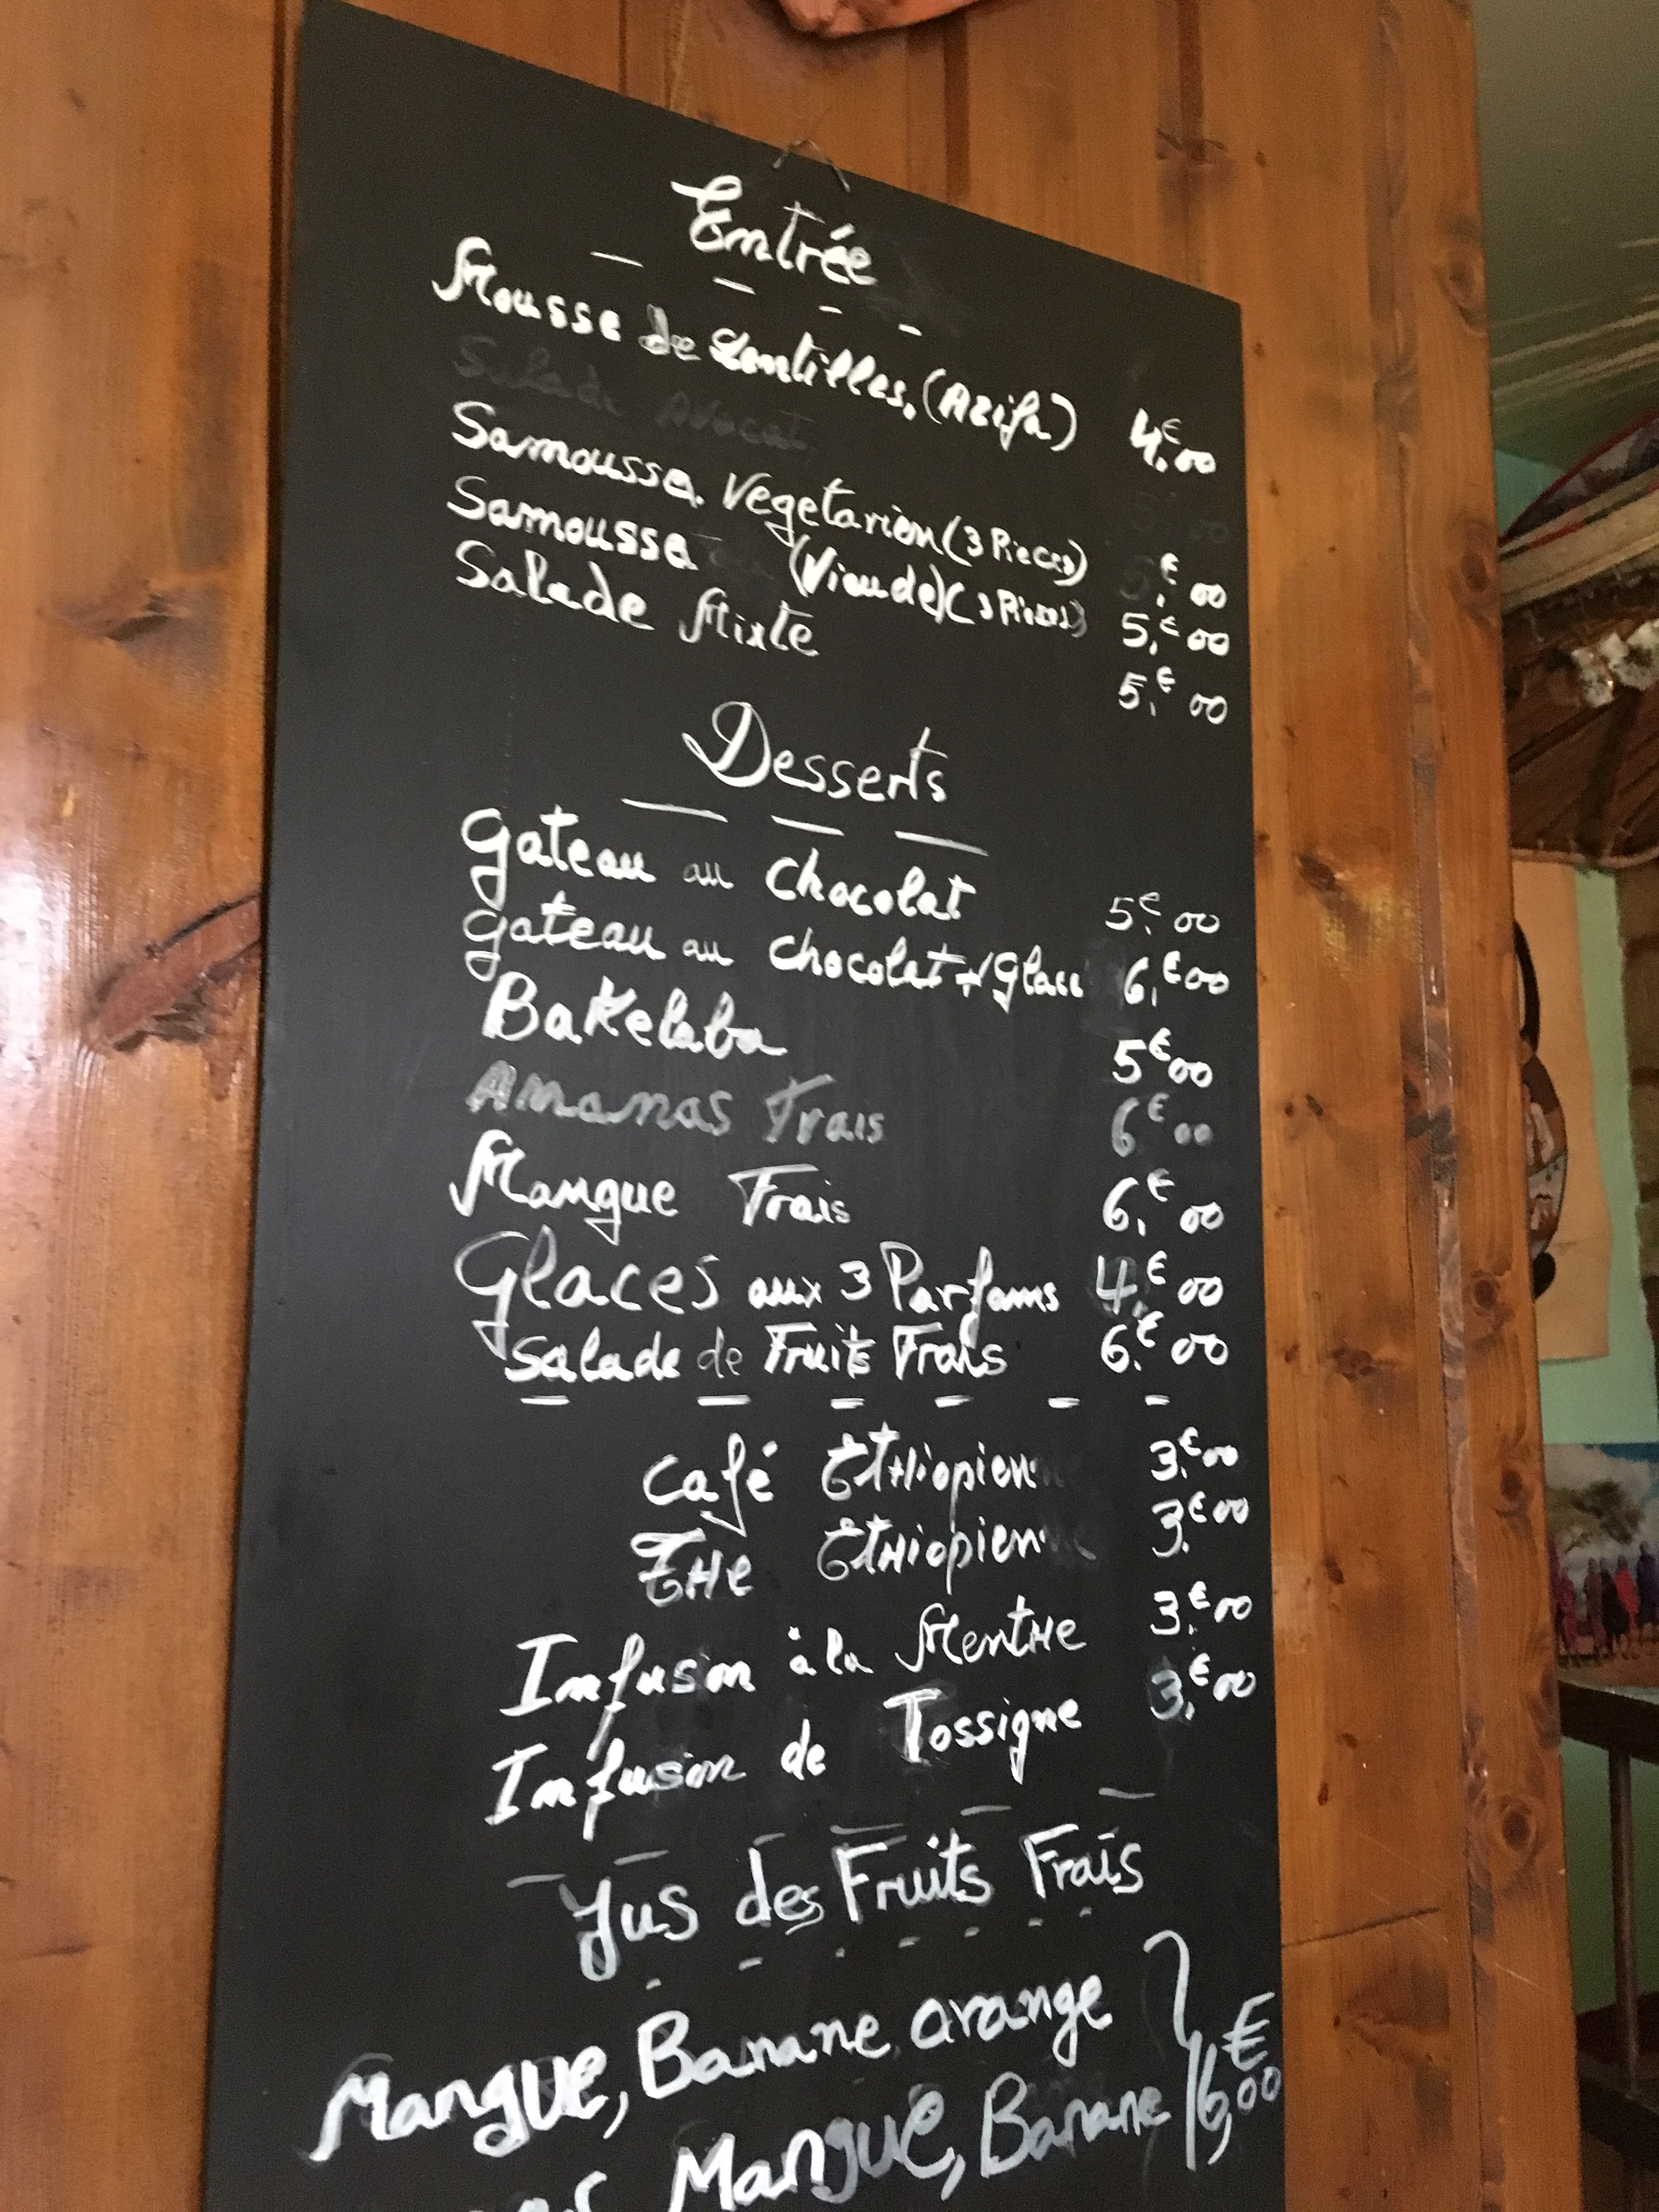 Entrée
Mousse de Lentilles, (Azifa) 4,€00
Salade Avocat
Samoussa Vegetarien (3 Pieces) 5,€00
Samoussa (Viande) (3 Pieces) 5,€00
Salade Mixte 5,€00
Desserts
Gateau au Chocolat 5,€00
Gateau au Chocolat + Glace 6,€00
Bakelaba 5€00
Ananas Frais 6€00
Mangue Frais 6,€00
Glaces aux 3 Parfums 4,€00
Salade de Fruits Frais 6,€00
Café ETHiopien 3,€00
THe ETHiopien 3,€00
Infusion à la MentHe 3,€00
Infusion de Tossigne 3,€00
Jus des Fruits Frais
Mangue, Banane, orange
Mangue, Banane 6,€00